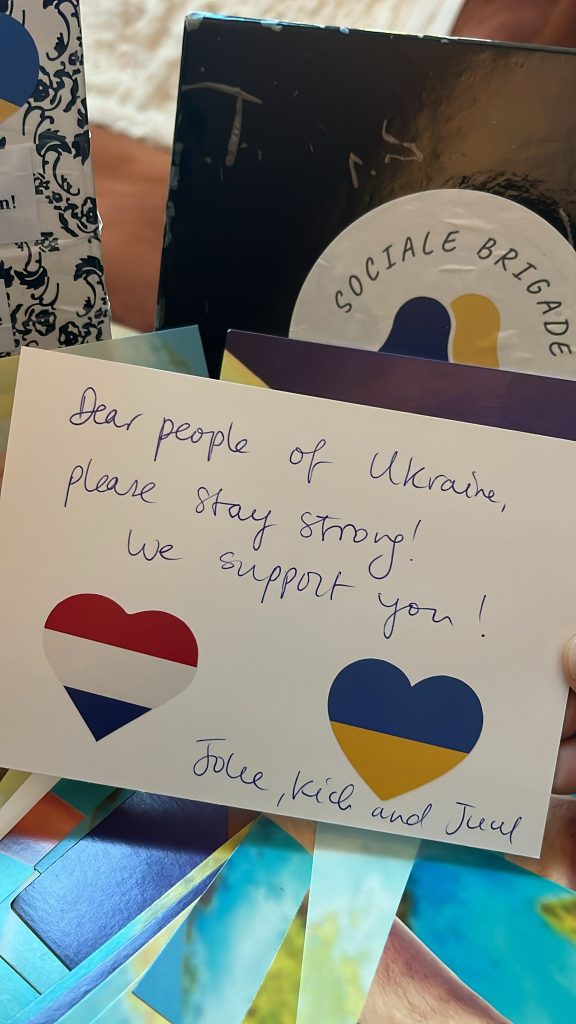 n!
SOCIALE BRIGADE
Dear people of Ukraine,
please stay strong!
We support you!
and Juul